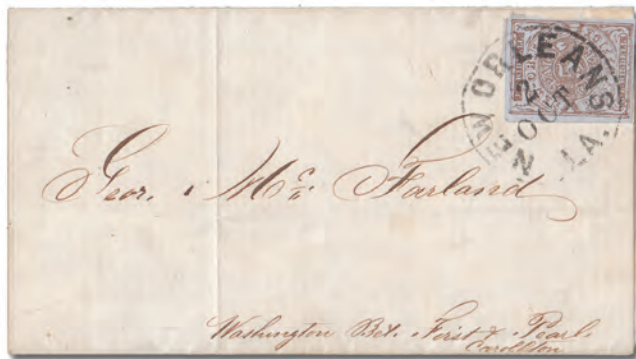 NEW ORLEANS LA.
25
OCT
Geor. Mc. Farland
Washington Bet. First & Pearl
Carollton